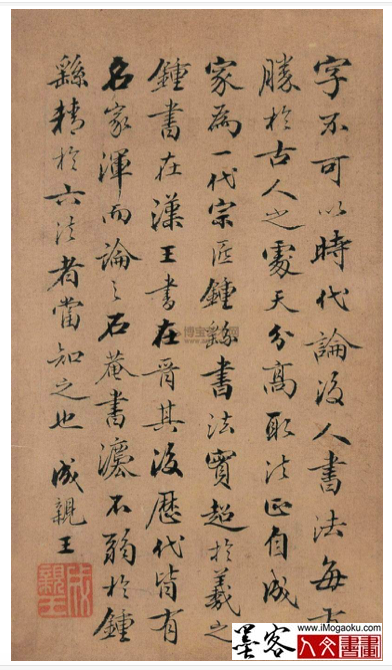 字不可以時代論後人書法每有
勝於古人之處天分高取法正自成
家為一代宗匠鍾繇書法實超於羲之
鍾書在漢王書在晉其後歷代皆有
名家渾而論之石菴書灋不弱於鍾
繇精於六法者當知之也 成親王
成親王
www.iMogaoku.com
墨客 人文書畫